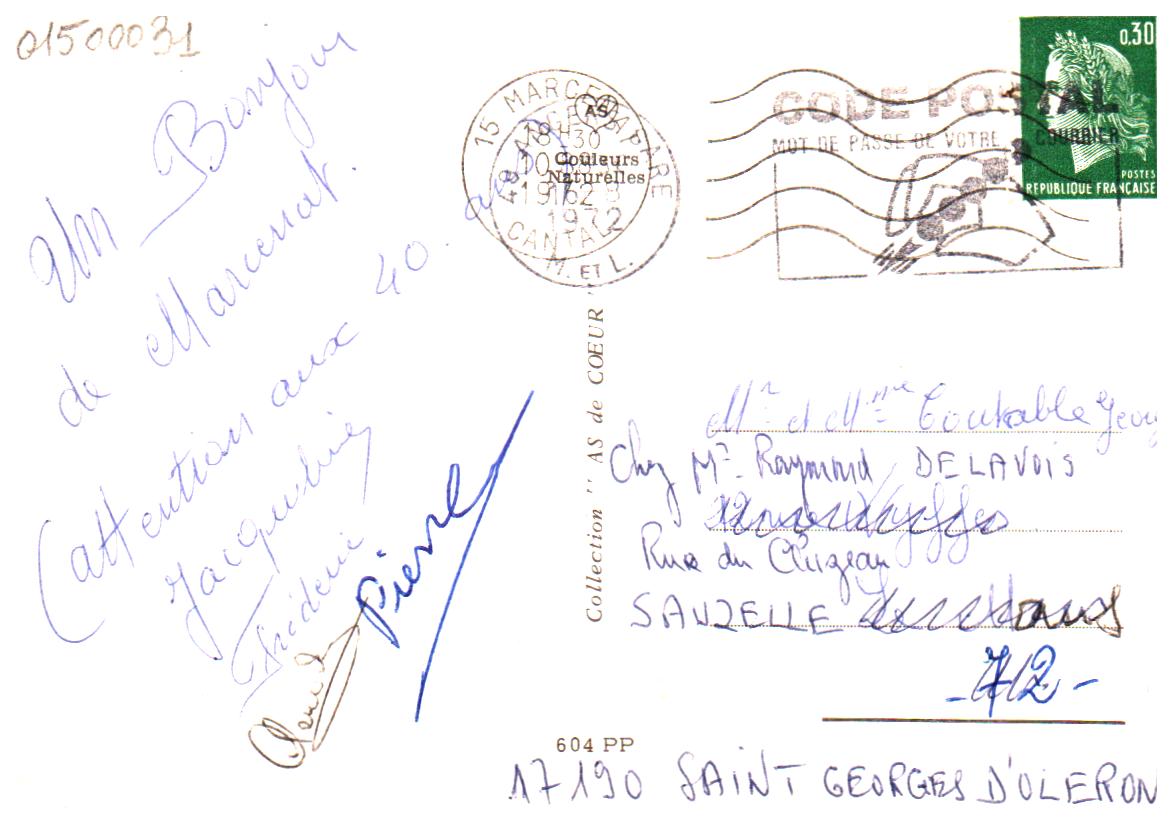 01500031
Un Bonjour
de Marcenat.
(attention aux 40 ans
Jacqueline
Frédéric
Claude
Pierre
15 MARCENAT
CANTAL
18H30
1972
AS
Couleurs
Naturelles
M. ET L.
CODE POSTAL
MOT DE PASSE DE VOTRE COURRIER
0,30
POSTES
REPUBLIQUE FRANÇAISE
Collection "AS de CŒUR"
Mr et Mme Coutable
Chez Mr. Raymond DELAVOIS
Rue du Cluzeau
SAUZELLE
-72-
604 PP
17190 SAINT GEORGES D'OLERON